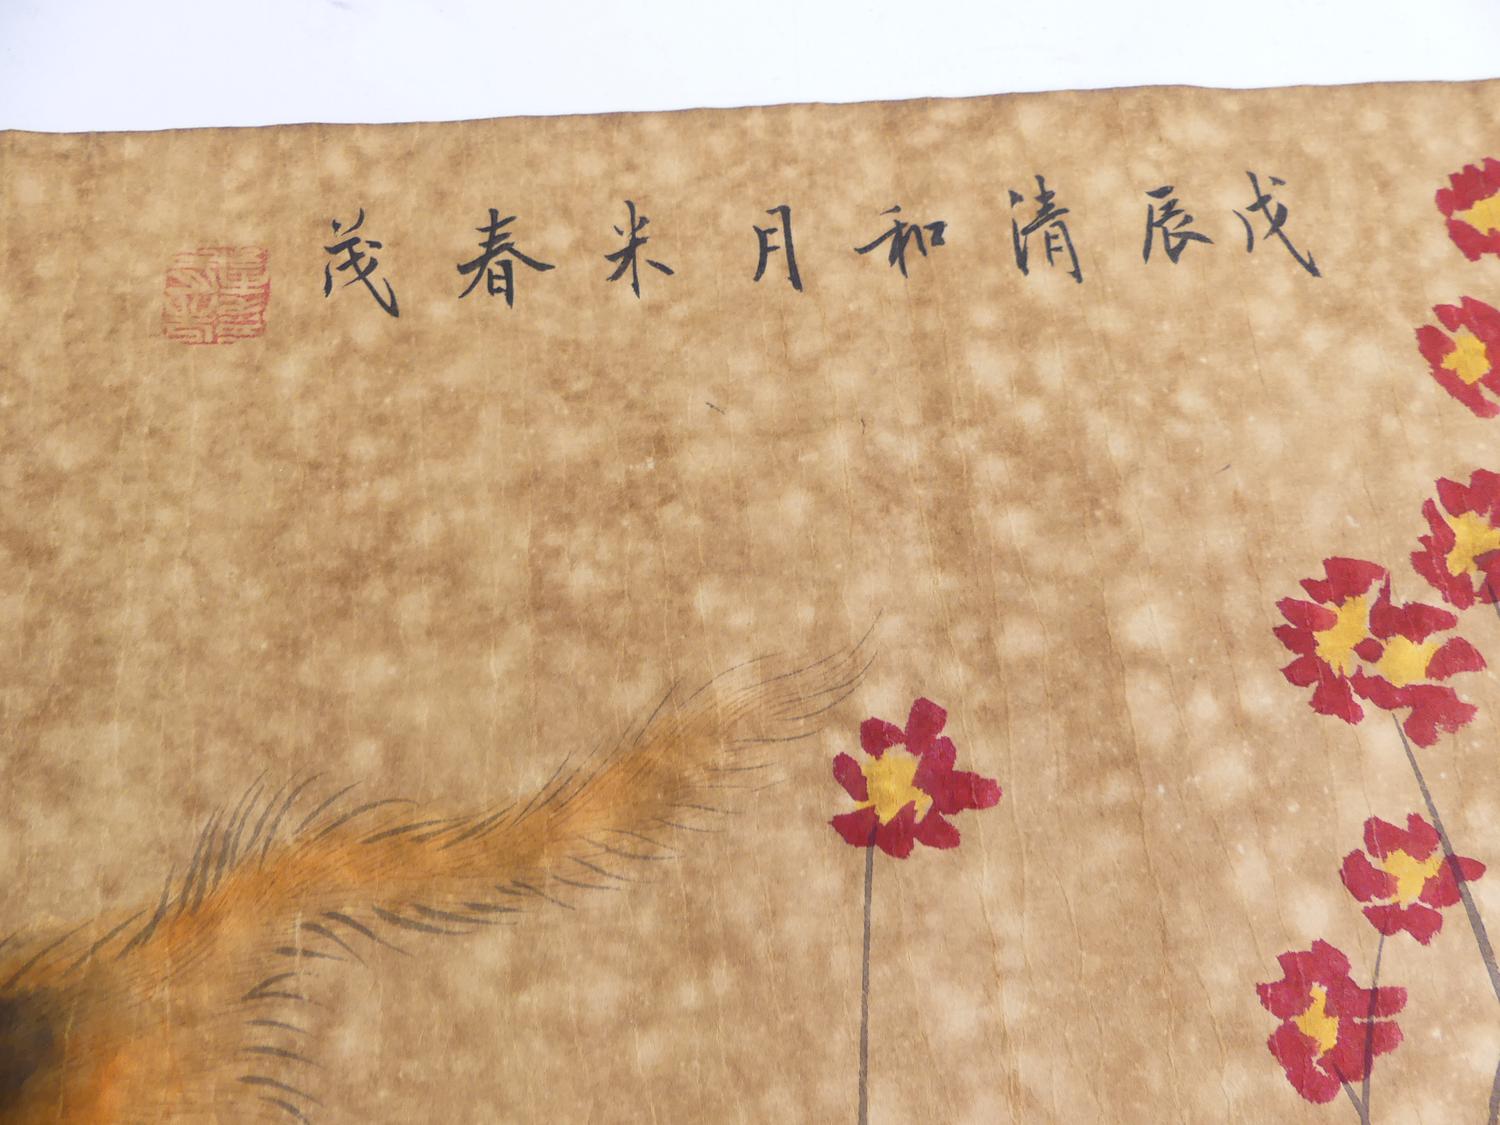 戊辰清和月米春茂